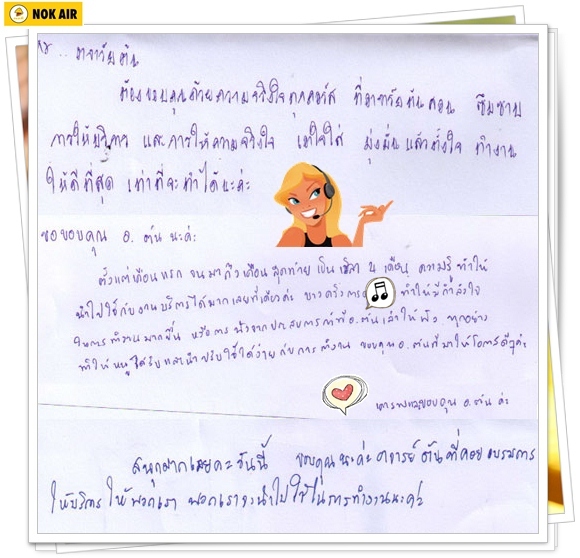 NOK AIR
อาจารย์ต้น
ต้องขอบคุณด้วยความจริงใจทุกคอร์ส ที่อาจารย์ต้นสอน ซึมซาบ
การให้บริการ และการให้ความจริงใจ เอาใจใส่ มุ่งมั่นแล้วตั้งใจ ทำงาน
ให้ดีที่สุด เท่าที่จะทำได้นะค่ะ
ขอขอบคุณ อ. ต้น นะค่ะ
ตั้งแต่เดือนแรก จนมาถึงเดือนสุดท้าย เป็นเวลา เดือน ความรู้ ทำให้
นำไปใช้กับงานบริการได้มากเลยทีเดียวค่ะ บางครั้งการ ทำให้มีกำลังใจ
ในการทำงานมากขึ้น หรือการ จากประสบการณ์ที่ อ.ต้นเล่าให้ฟัง ทุกอย่าง
ทำให้หนูได้รับและนำปรับใช้ได้ง่ายกับการทำงาน ขอบคุณ อ.ต้นที่มาให้โอกาสดีๆค่ะ
เคารพและขอบคุณ อ.ต้น ค่ะ
สนุกมากเลยคะวันนี้ ขอบคุณนะค่ะอาจารย์ต้นที่คอยอบรมการ
ให้บริการ ให้พวกเรา พวกเราจะนำไปใช้ในการทำงานนะค่ะ